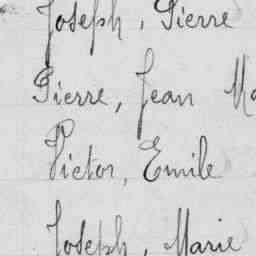 Joseph, Pierre
Pierre, Jean Ma
Victor, Emile
Joseph, Marie